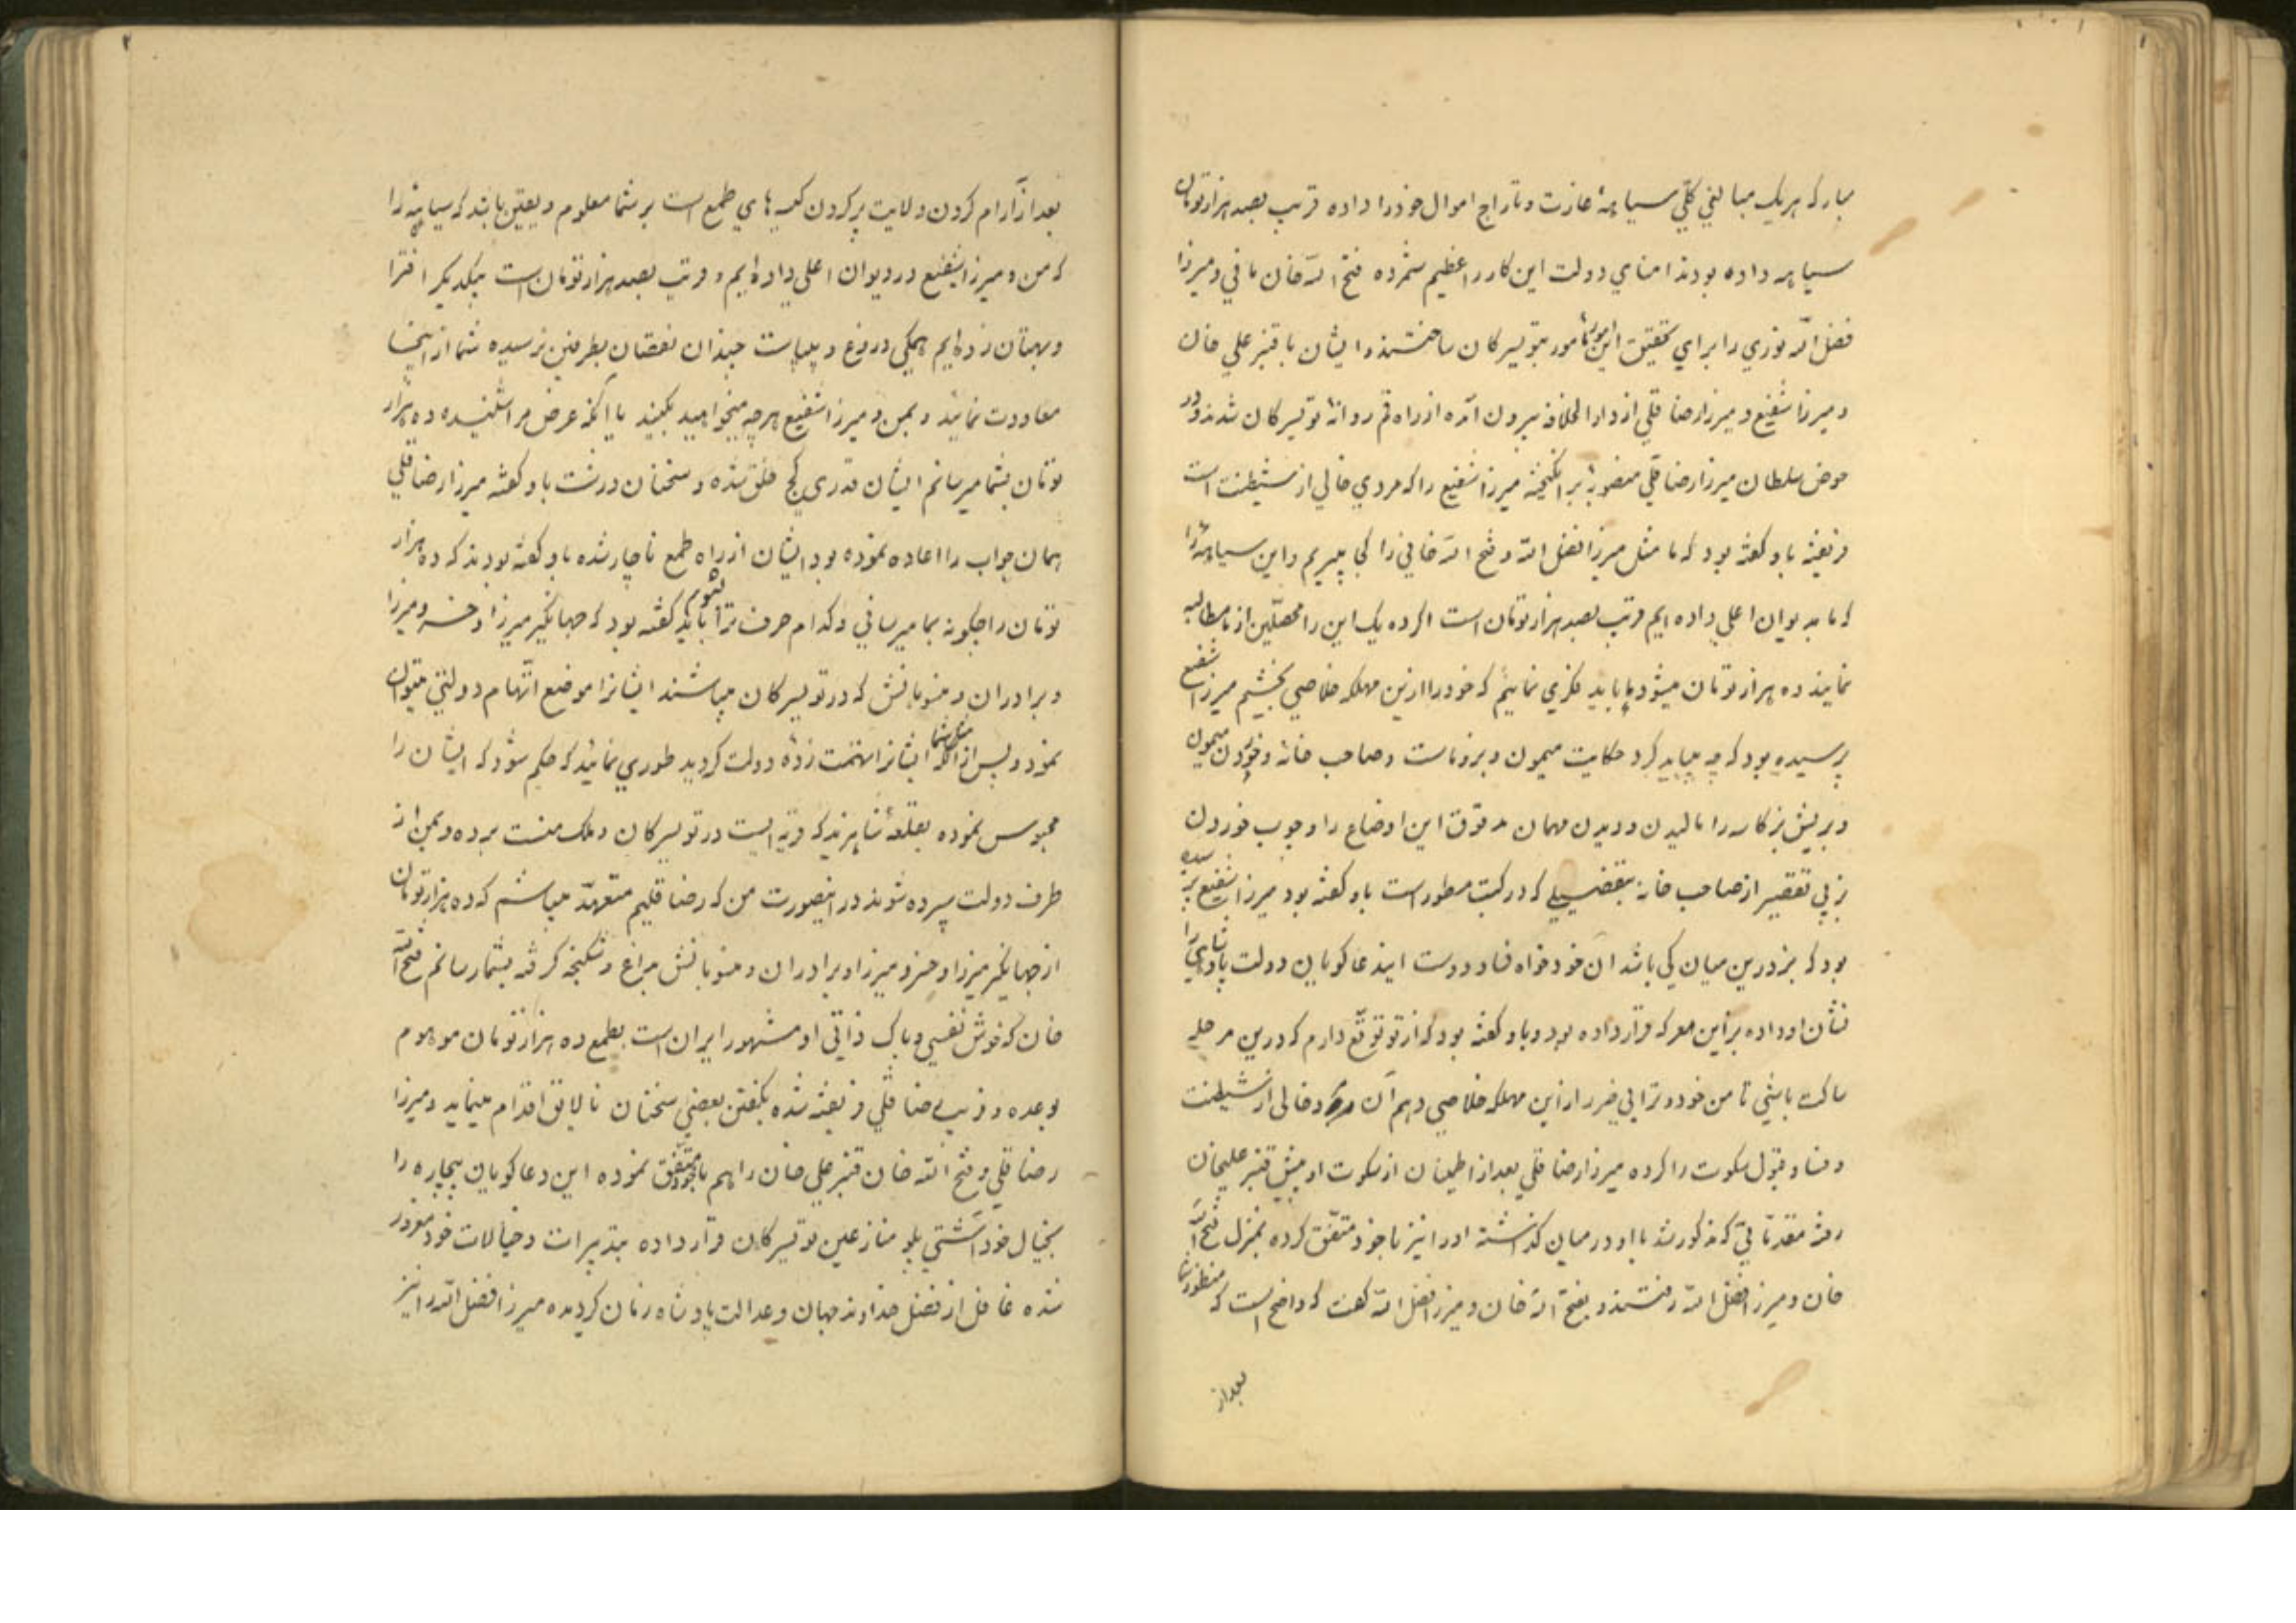 مبارکه هریک مبالغی کلّی سیاههٔ غارت و تاراج اموال خود را داده قریب بصد هزار تومان
سیاهه داده بودند امنای دولت این کار را عظیم شمرده فتح الله خان مافی و میرزا
فضل الله نوری را برای تحقیق این امورات مامور بتویسرکان ساختند و ایشان با قنبر علی خان
و میرزا شفیع و میرزا رضا قلی از دار الخلافه بیرون آمده از راه قم روانهٔ تویسرکان شدند و در
حوض سلطان میرزا رضا قلی منصوبهٔ بر انگیخته میرزا شفیع را که مردی خالی از شیطنت است
فریفته باو گفته بود که ما مثل میرزا فضل الله و فتح الله خانی را کجا میبریم و این سیاههٔ را
که ما بدیوان اعلی داده ایم قریب بصد هزار تومان است اگر ده یک این را محصّلین از ما مطالبه
نمایند ده هزار تومان میشود ما باید فکری نمائیم که خود را ازین مهلکه خلاصی بخشیم میرزا شفیع
پرسیده بود که چه میباید کرد حکایت میمون و بز و ماست و صاحب خانه و خوردن میمون
و بریش بز کاسه را مالیدن و دیدن مهمان مرقوق این اوضاع را و چوب خوردن
بز بی تقصیر از صاحب خانه بتفضیلی که در کتب مسطور است باو گفته بود میرزا شفیع پرسیده
بود که بز درین میان کی باشد آن خود خواه فساد دوست اینه عاکویان دولت پادشاهی را
نشان او داده بز این معرکه قرار داده بود و باو گفته بود که از تو توقّع دارم که درین مرحله
ساکت باشی تا من خود و ترا بی ضرر از این مهلکه خلاصی دهم آن مرد خالی از شیطنت
و فساد قبول سکوت را کرده میرزا رضا قلی بعد از اطمینان از سکوت او پیش قنبر علیخان
رفته مقدماتی که مذکور شد با او در میان گذاشته او را نیز با خود متّفق کرده بمنزل فتح الله
خان و میرزا فضل الله رفتند و بفتح الله خان و میرزا فضل الله گفت که واضح است که منظور شما
بعد از
۲
بعد از آرام کردن ولایت پر کردن کیسه های طمع است بر شما معلوم و یقین باشد که سیاههٔ را
که من و میرزا شفیع در دیوان اعلی داده ایم و قریب بصد هزار تومان است بیکدیگر افترا
و بهتان زده ایم همگی دروغ و بیپاست چندان نقصان بطرفین نرسیده شما از اینجا
معاودت نمائید و بمن و میرزا شفیع هرچه میخواهید بکنید یا آنکه عرض مرا شنیده ده هزار
تومان بشما میرسانم ایشان قدری کج خلق شده و سخنان درشت باو گفته میرزا رضا قلی
همان جواب را اعاده نموده بود ایشان از راه طمع ناچار شده باو گفته بودند که ده هزار
تومان را چگونه بما میرسانی و کدام حرف ترا باید بشنویم گفته بود که جهانگیر میرزا و خسرو میرزا
و برادران و منسوبانش که در تویسرکان میباشند ایشانرا موضع اتّهام دولتی میتوان
نمود و پس از آنکه شما ایشانرا تهمت زدهٔ دولت کردید طوری نمائید که حکم شود که ایشان را
محبوس نموده بقلعهٔ شاهزند که قریه ایست در تویسرکان و ملک منست برده و بمن از
طرف دولت سپرده شوند در اینصورت من که رضا قلیم متعهّد میباشم که ده هزار تومان
از جهانگیر میرزا و خسرو میرزا و برادران و منسوبانش بداغ و شکنجه گرفته بشما رسانم فتح الله
خان که خوش نفسی و پاک ذاتی او مشهور ایران است بطمع ده هزار تومان موهوم
بوعده و فریب رضا قلی فریفته شده بگفتن بعضی سخنان نالایق اقدام مینماید و میرزا
رضا قلی و فتح الله خان قنبر علی خان را هم با خود متّفق نموده این دعا گویان بیچاره را
بخیال خود آشتی پلو منازعین تویسرکان قرار داده بتدبیرات و خیالات خود مغرور
شده غافل از فضل خداوند جهان و عدالت پادشاه زمان گردیده میرزا فضل الله را نیز